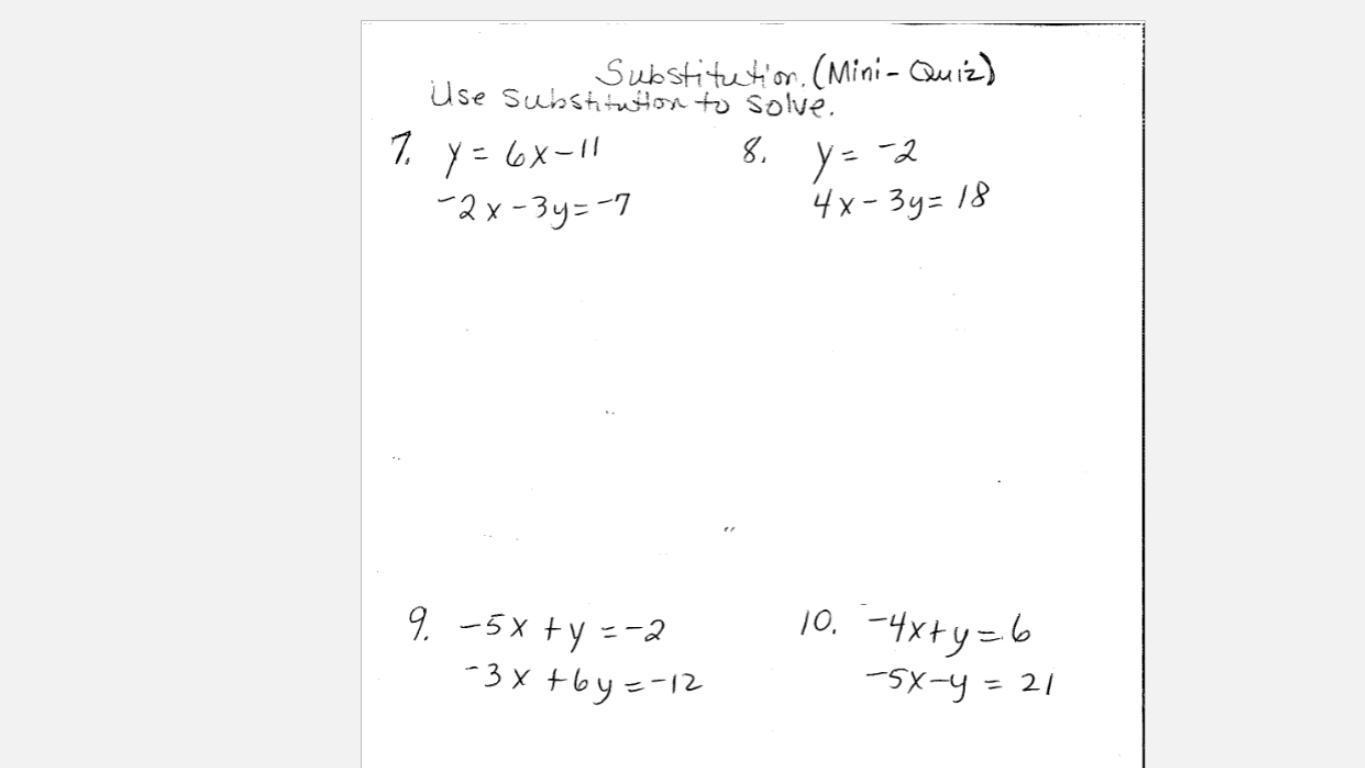 Substitution. (Mini-Quiz)
Use substitution to solve.
7. y = 6x-11
-2x-3y=-7
8. y = -2
4x-3y= 18
9. -5x+y=-2
-3x+6y=-12
10. -4x+y=6
-5x-y = 21